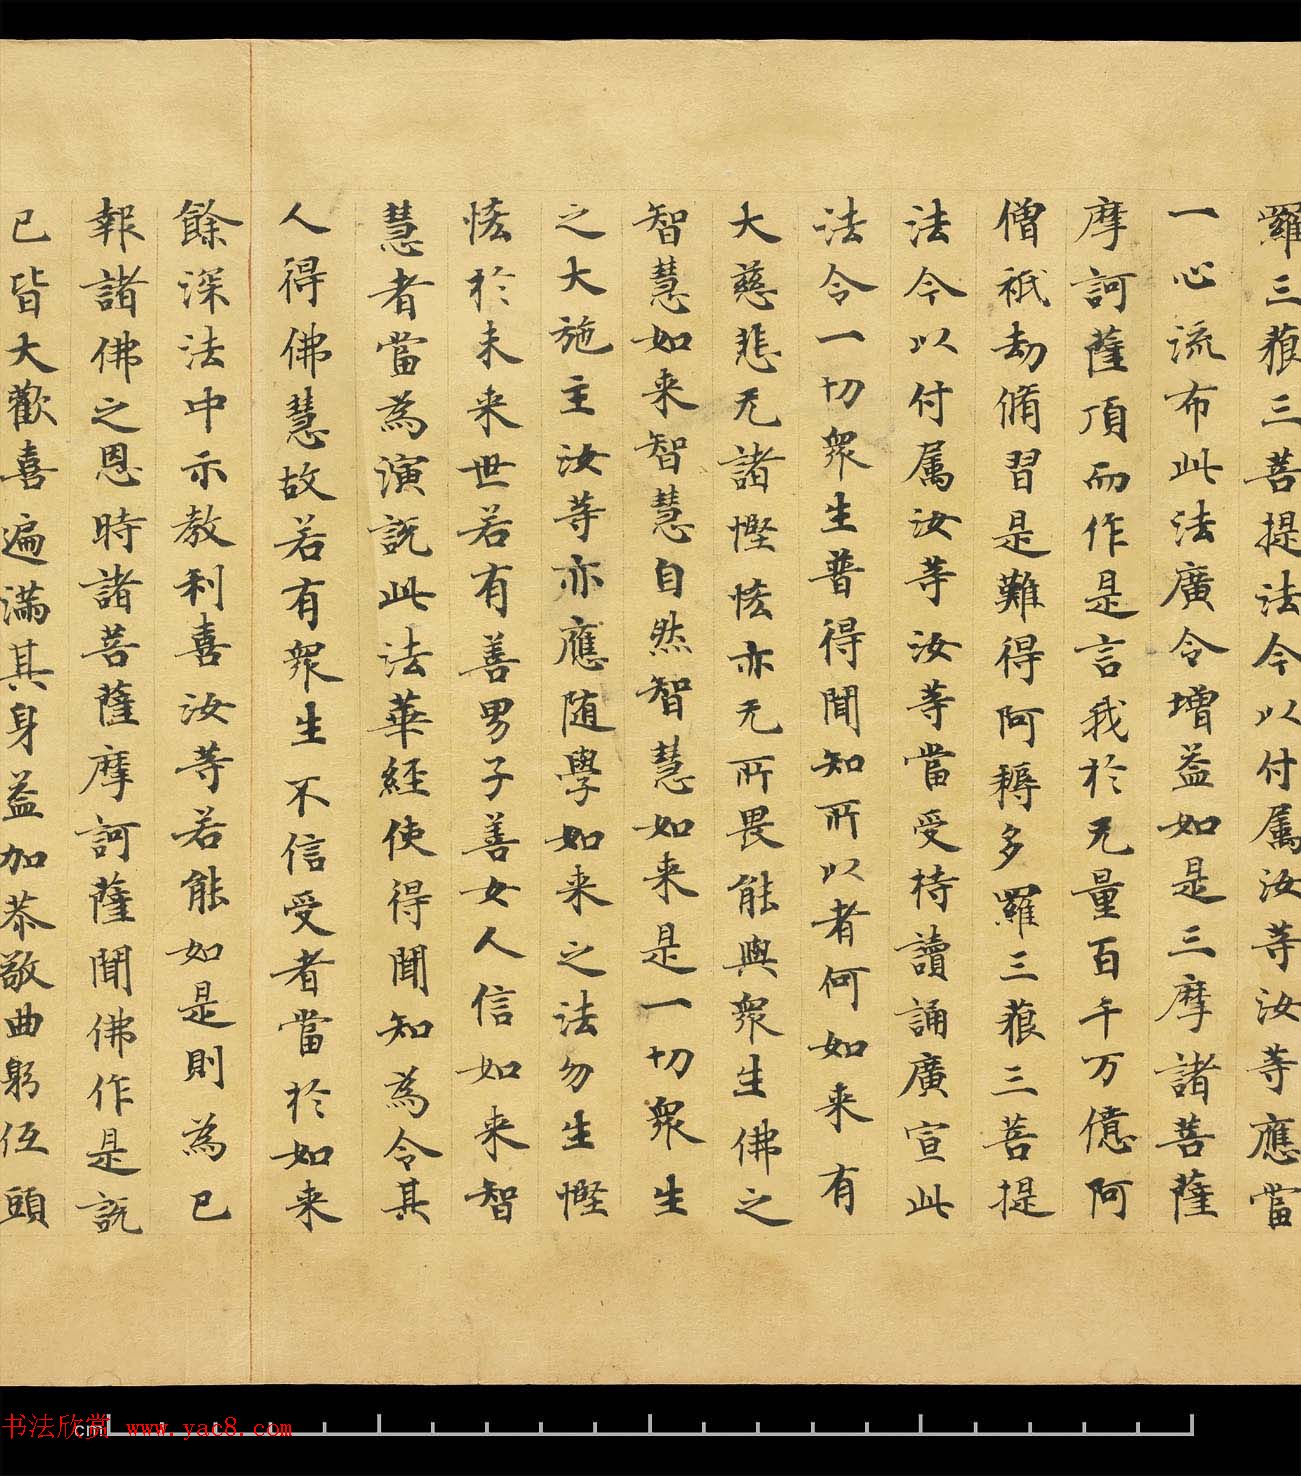 羅三藐三菩提法今以付属汝等汝等應當
一心流布此法廣令增益如是三摩諸菩薩
摩訶薩頂而作是言我於无量百千万億阿
僧祇劫脩習是難得阿耨多羅三藐三菩提
法今以付属汝等汝等當受持讀誦廣宣此
法令一切衆生普得聞知所以者何如来有
大慈悲无諸慳悋亦无所畏能與衆生佛之
智慧如来智慧自然智慧如来是一切衆生
之大施主汝等亦應随學如来之法勿生慳
悋於未来世若有善男子善女人信如来智
慧者當為演說此法華經使得聞知為令其
人得佛慧故若有衆生不信受者當於如来
餘深法中示教利喜汝等若能如是則為已
報諸佛之恩時諸菩薩摩訶薩聞佛作是說
已皆大歡喜遍滿其身益加恭敬曲躬伍頭
书法欣赏 www.yac8.com
cm